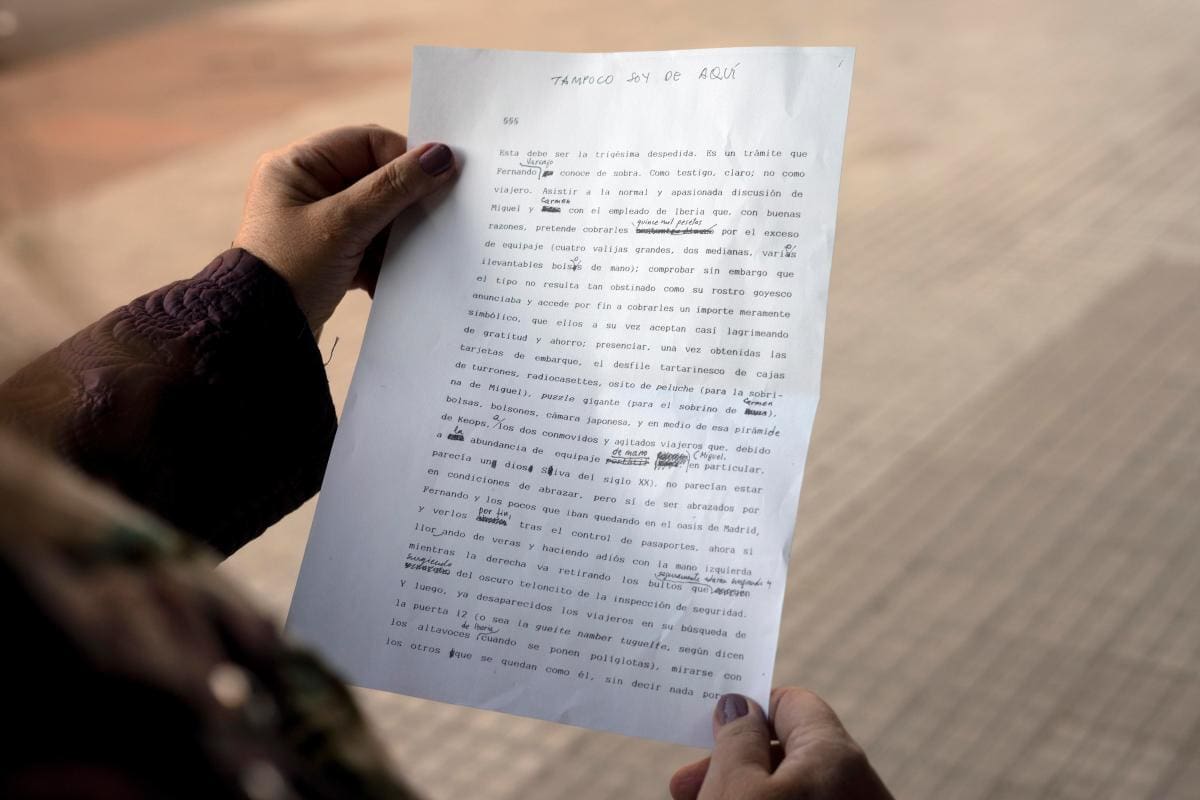 TAMPOCO SOY DE AQUÍ
555
Esta debe ser la trigésima despedida. Es un trámite que
Varengo
Fernando conoce de sobra. Como testigo, claro; no como
viajero. Asistir a la normal y apasionada discusión de
Carmen
Miguel y con el empleado de Iberia que, con buenas
quince mil pesetas
razones, pretende cobrarles por el exceso
de equipaje (cuatro valijas grandes, dos medianas, varios
ilevantables bolsos de mano); comprobar sin embargo que
el tipo no resulta tan obstinado como su rostro goyesco
anunciaba y accede por fin a cobrarles un importe meramente
simbólico, que ellos a su vez aceptan casi lagrimeando
de gratitud y ahorro; presenciar, una vez obtenidas las
tarjetas de embarque, el desfile tartarinesco de cajas
de turrones, radiocasettes, osito de peluche (para la sobri-
na de Miguel), puzzle gigante (para el sobrino de
Carmen
),
bolsas, bolsones, cámara japonesa, y en medio de esa pirámide
de Keops, a los dos conmovidos y agitados viajeros que, debido
la
a abundancia de equipaje
de mano
(Miguel,
en particular,
parecía un dios Shiva del siglo XX), no parecían estar
en condiciones de abrazar, pero sí de ser abrazados por
Fernando y los pocos que iban quedando en el oasis de Madrid,
por fin,
y verlos tras el control de pasaportes, ahora sí
llorando de veras y haciendo adiós con la mano izquierda
mientras la derecha va retirando los bultos que
surgiendo
del oscuro teloncito de la inspección de seguridad.
Y luego, ya desaparecidos los viajeros en su búsqueda de
la puerta 12 (o sea la gueite namber tuguelfe, según dicen
de Iberia
los altavoces cuando se ponen políglotas), mirarse con
los otros que se quedan como él, sin decir nada